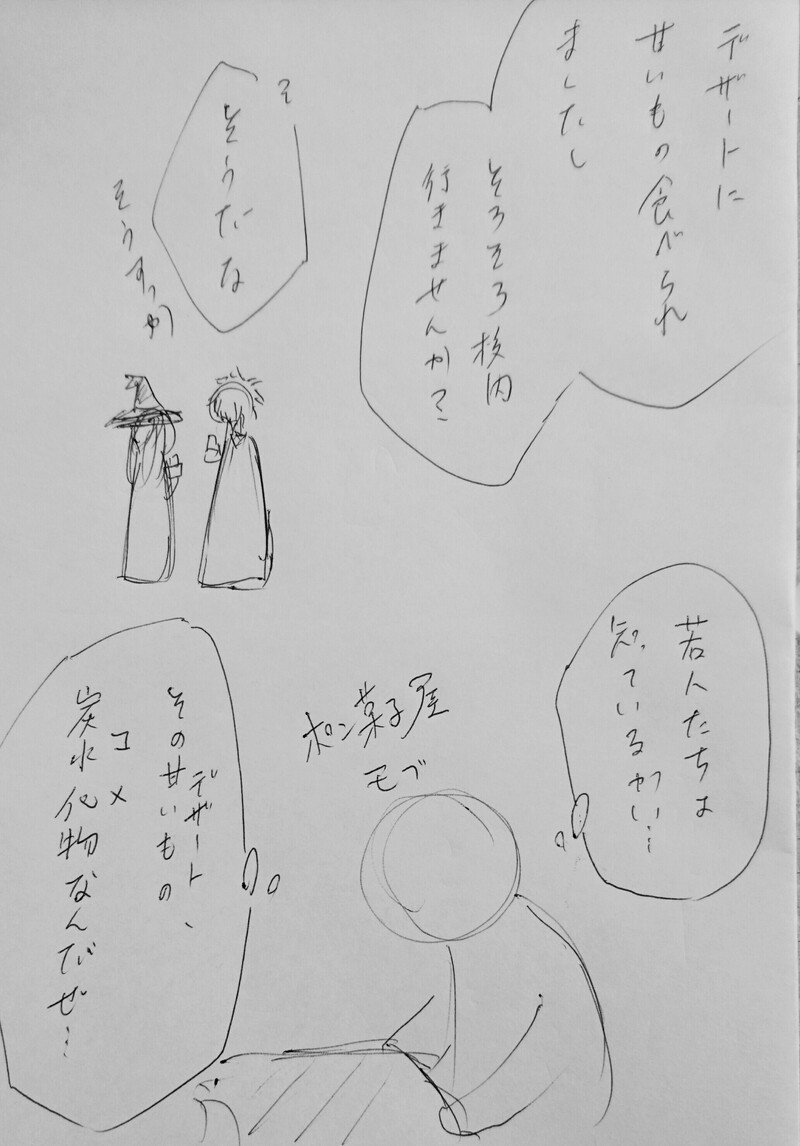 デザートに
甘いもの食べられ
ましたし
そろそろ校内
行きませんか?
そ
そうだな
そうすっか
若人たちは
知っているかい…
ポン菓子屋
モブ
デザート、
その甘いもの
コメ
炭水化物なんだぜ…